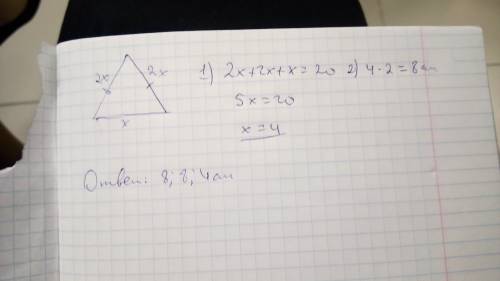 2x 2x
x
1) 2x+2x+x=20 2) 4·2=8см
5x=20
x=4
Ответ: 8; 8; 4см